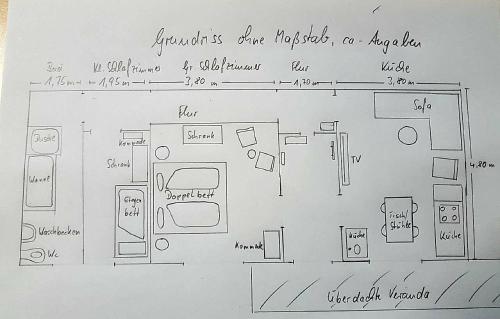 Grundriss ohne Maßstab, ca-Angaben
Kl. Schlafzimmer Gr. Schlafzimmer Flur Küche
1,75m 1,95m 3,80m 1,70m 3,80m
Flur
Sofa
Dusche
Kommode
Schrank
Schrank
TV
4,80m
Wanne
Etagen
bett
Doppelbett
Tisch/
Stühle
Waschbecken
Kommode
Küche
Küche
WC
Überdachte Veranda